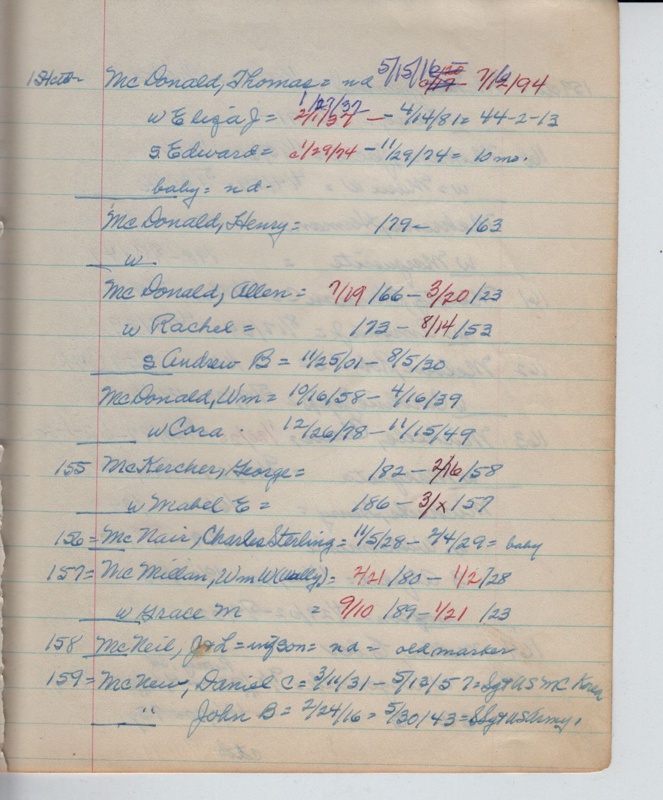 McDonald, Thomas = nd 5/15/16 7/12/94
w Eliza J = 2/1/37 1/27/37 — 4/14/81 = 44-2-13
S. Edward = 1/29/74 - 11/29/74 = 10 mo.
baby = nd-
McDonald, Henry = /79- /63
w
McDonald, Allen = 7/19/66 - 3/20/23
w Rachel = /73 - 8/14/53
S Andrew B = 11/25/01 - 8/5/30
McDonald, Wm = 10/16/58 - 4/16/39
w Cora. 12/26/78 - 11/15/49
155 McKercher, George = /82 - 2/16/58
w Mabel E = 186 - 3/x/57
156 = McNair, Charles Sterling = 11/5/28 - 2/4/29 = baby
157 = McMillan, Wm W(Wally) = 2/21/80 - 1/2/28
w Grace M = 9/10/89 - 1/21/23
158 McNeil, J + L = nd = old marker
159 = McNew, Daniel C = 3/14/31 - 5/13/57 = Sgt US MC Korea
" John B = 2/24/16 = 5/30/43 = SSgt US Army.